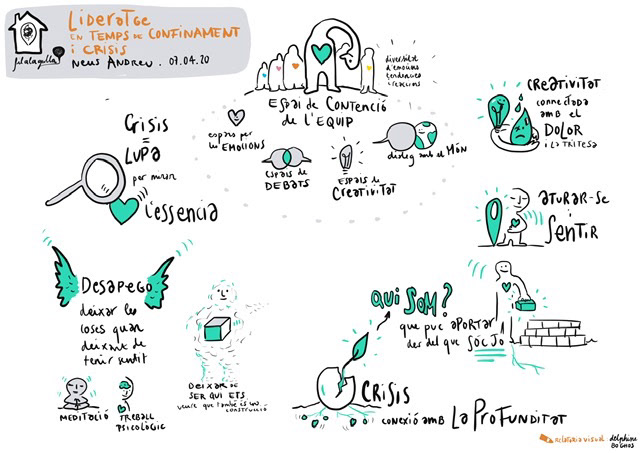 Lideratge
en temps de confinament
i crisis
Neus Andreu. 07.04.20
filalagulla
diversitat
d'emocions
tendències
i reaccions
Espai de contenció
de l'EQUIP
espais per
les EMOCIONS
espais de
DEBATS
ESPAIS de
Creativitat
diàleg amb el Món
creativitat
connectada
amb el
DOLOR
i la tristesa
Crisis
=
Lupa
per mirar
l'essencia
aturar-se
i
sentir
Desapego
deixar les
coses quan
deixen de
tenir sentit
MEDITACIÓ
TREBALL
PSICOLÒGIC
DEIXAR DE
SER QUI ETS
veure que també és una
construcció
QUI SOM?
que puc APORTAR
des del que SÓC JO
CRISIS
conexió amb La Profunditat
relatoria visual
delphine
boghos